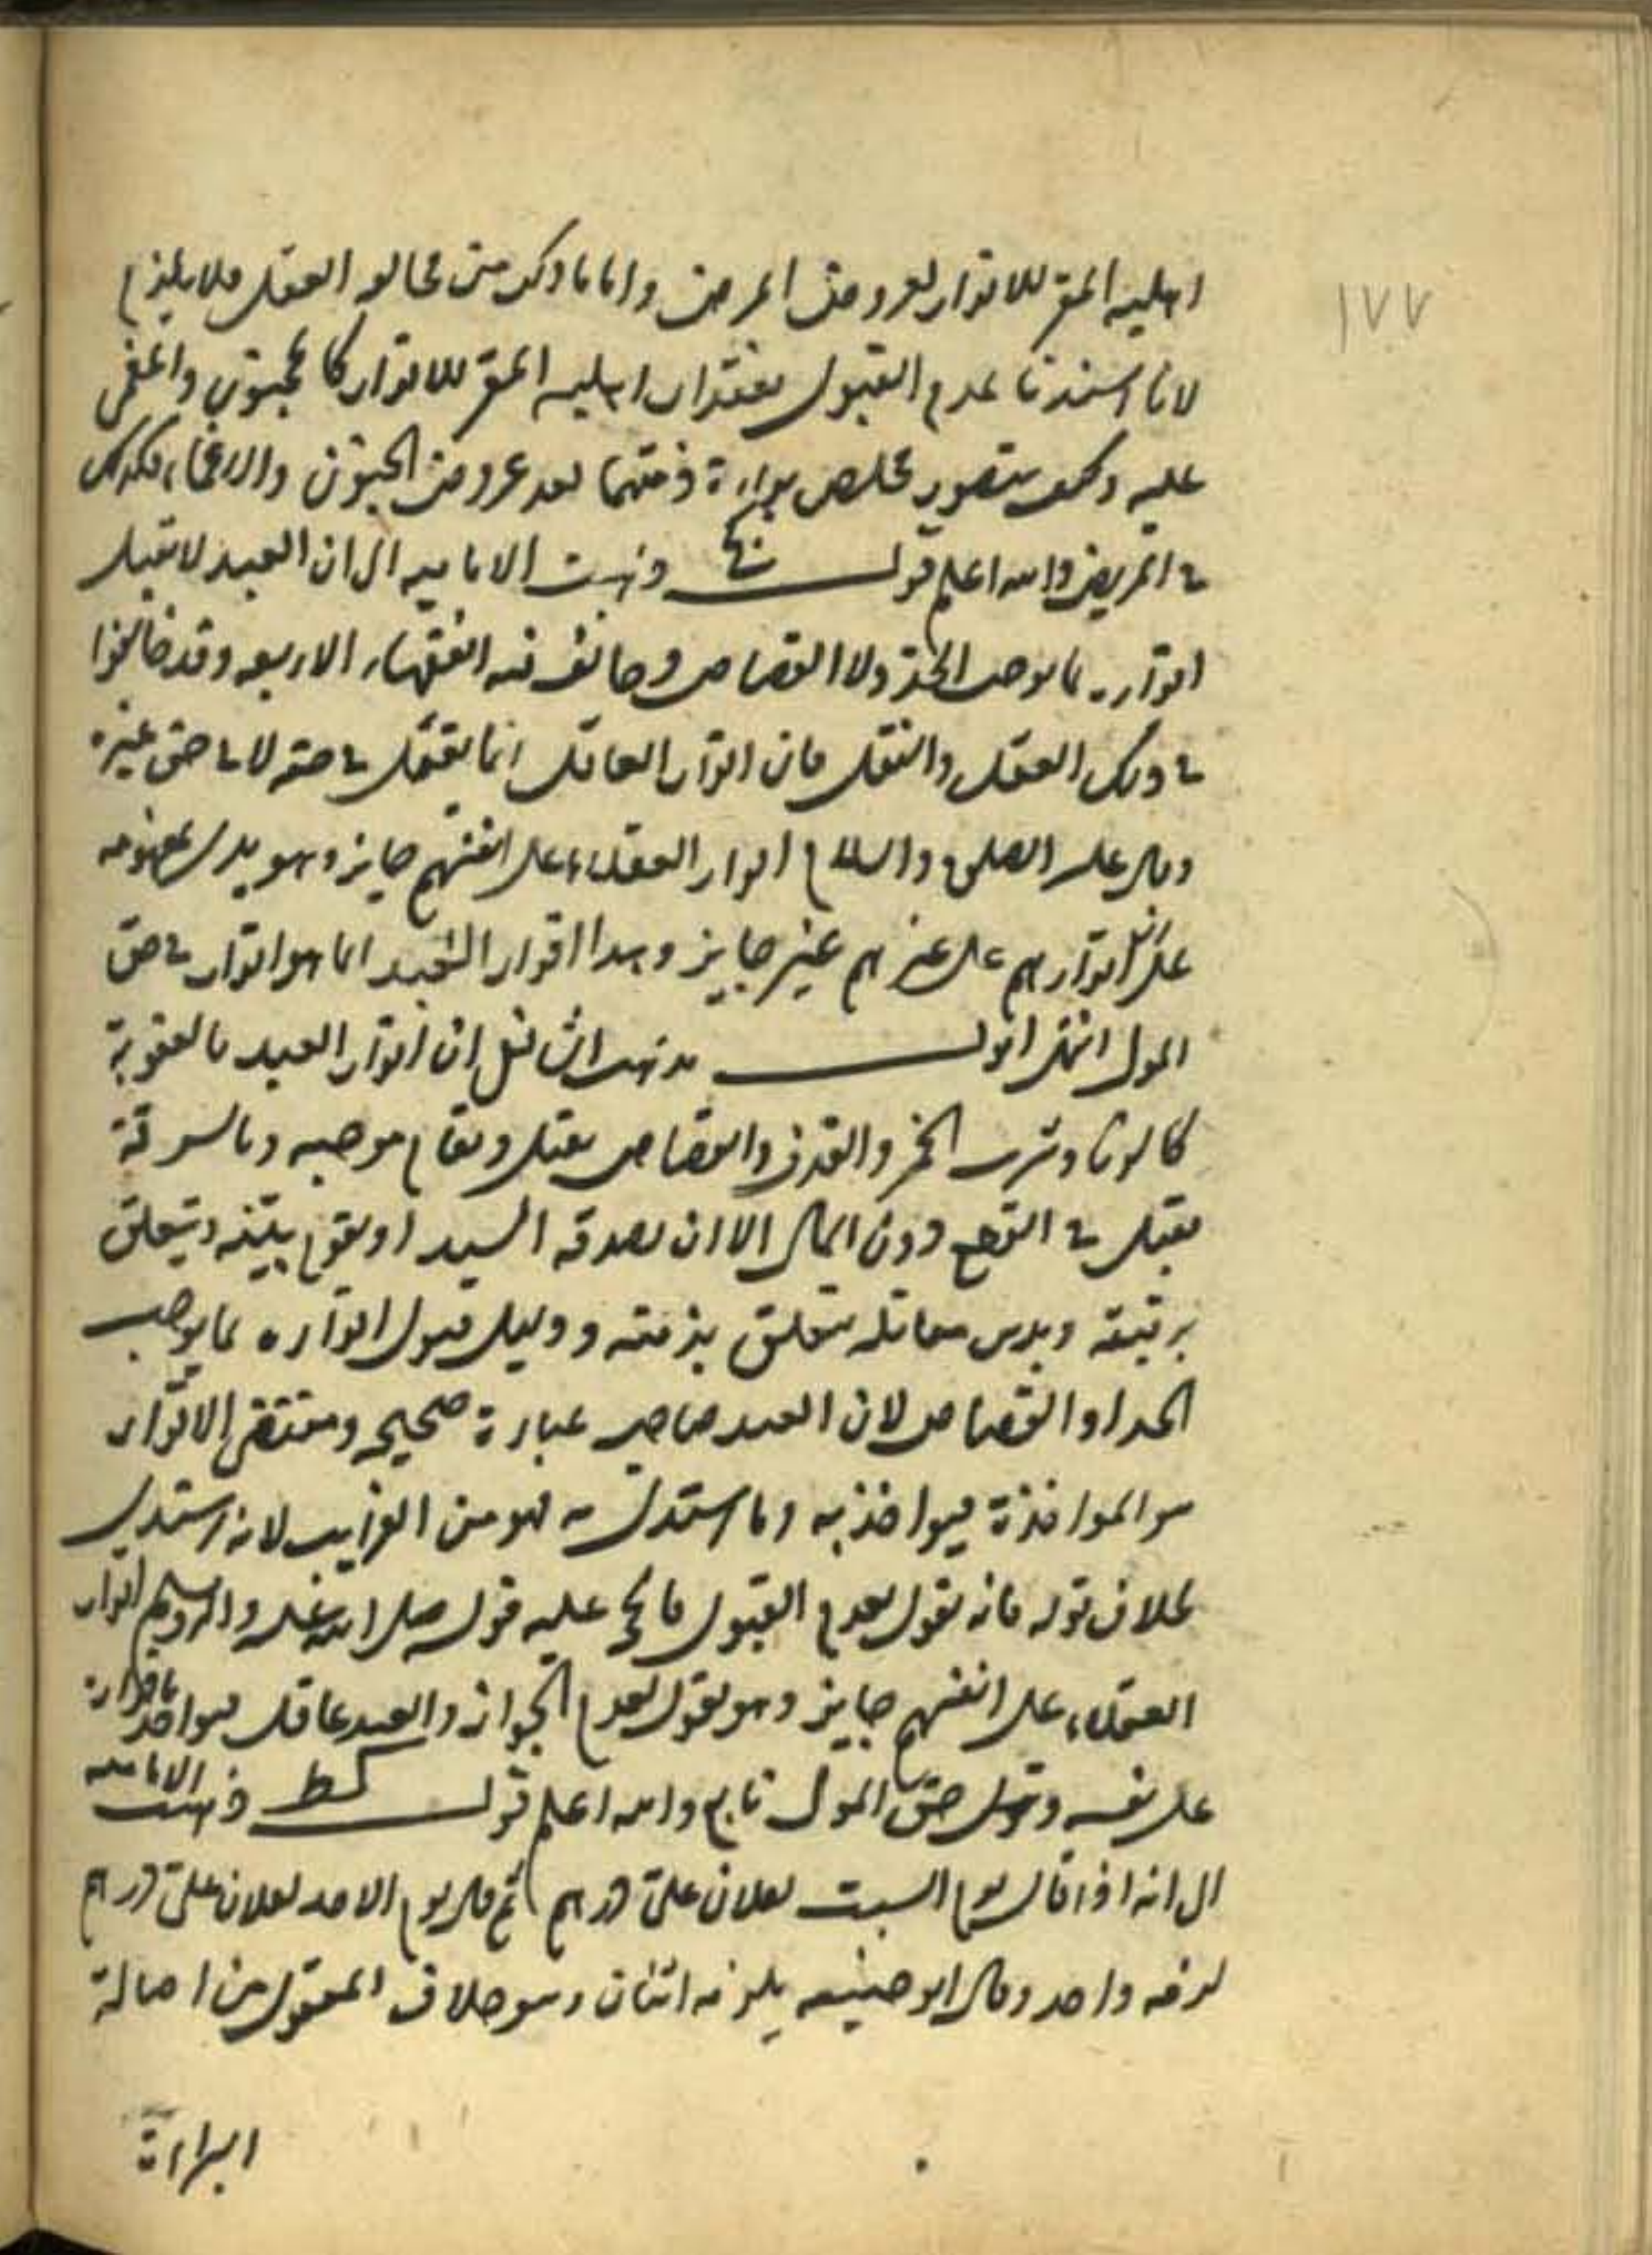 ١٧٧
اهلية المقر للاقرار لعروض المرض واما ما ذكر من مخالفه العقل فلا يلزم
لانا اسندنا عدم القبول بفقدان اهلية المقر للاقرار كالمجنون والمغمى
عليه وكيف يتصور تخلص براءة ذمتهما بعد عروض الجنون والاغماء فكذلك
في المريض والله اعلم قوله ذهبت الامامية الى ان العبد لا تقبل
اقراره بما يوجب الحد ولا القصاص وخالف فيه الفقهاء الاربعه وقد خالفوا
في ذلك العقل والنقل فان اقرار العاقل انما يقبل في حقه لا في حق غيره
وقال عليه الصلوة والسلام اقرار العقلاء على انفسهم جايز وهو يدل بمفهومه
على ان اقرارهم على غيرهم غير جايز وهذا اقرار العبد انما هو اقرار في حق
المولى انتهى اقول مذهب الشافعي ان اقرار العبد بالعقوبة
كالزنا وشرب الخمر والقذف والقصاص يقبل ويقام موجبه وبالسرقة
يقبل في القطع دون المال الا ان يصدقه السيد او يقوم بينه ويتعلق
برقبته وبدين معاملة يتعلق بذمته ودليل قبول اقراره بما يوجب
الحد او القصاص لان العبد صاحب عبارة صحيحه ومقتضى الاقرار
هو المواخذة فيواخذ به وما استدل به فهو من الغرايب لانه استدل
بخلاف قوله فانه يقول بعدم القبول فالحجه عليه قوله صلى الله عليه واله وسلم اقرار
العقلاء على انفسهم جايز وهو يقول بعدم الجواز والعبد عاقل فيواخذ باقراره
على نفسه وحق المولى تابع والله اعلم قوله كط ذهبت الامامية
الى انه اذا قال يوم السبت لفلان على درهم ثم قال يوم الاحد لفلان على درهم
لزمه واحد وقال ابو حنيفه يلزمه اثنان وهو خلاف المعقول من اصالة
البراءة